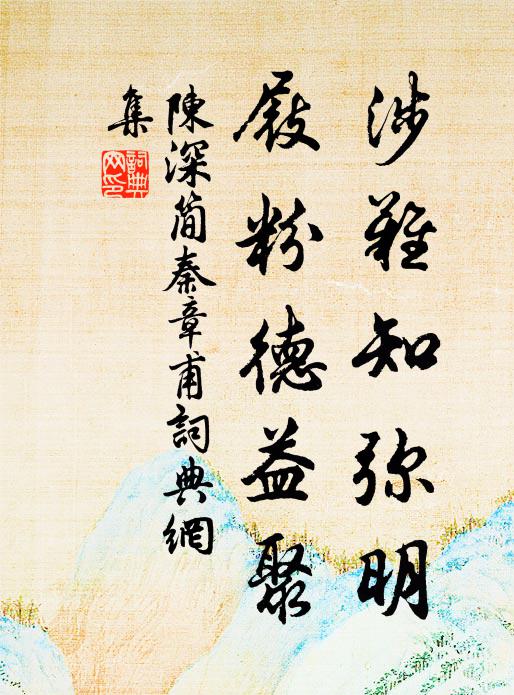 涉難知弥明
殿粉德益聚
陳深簡秦章甫詞典網
集
詞典
网印